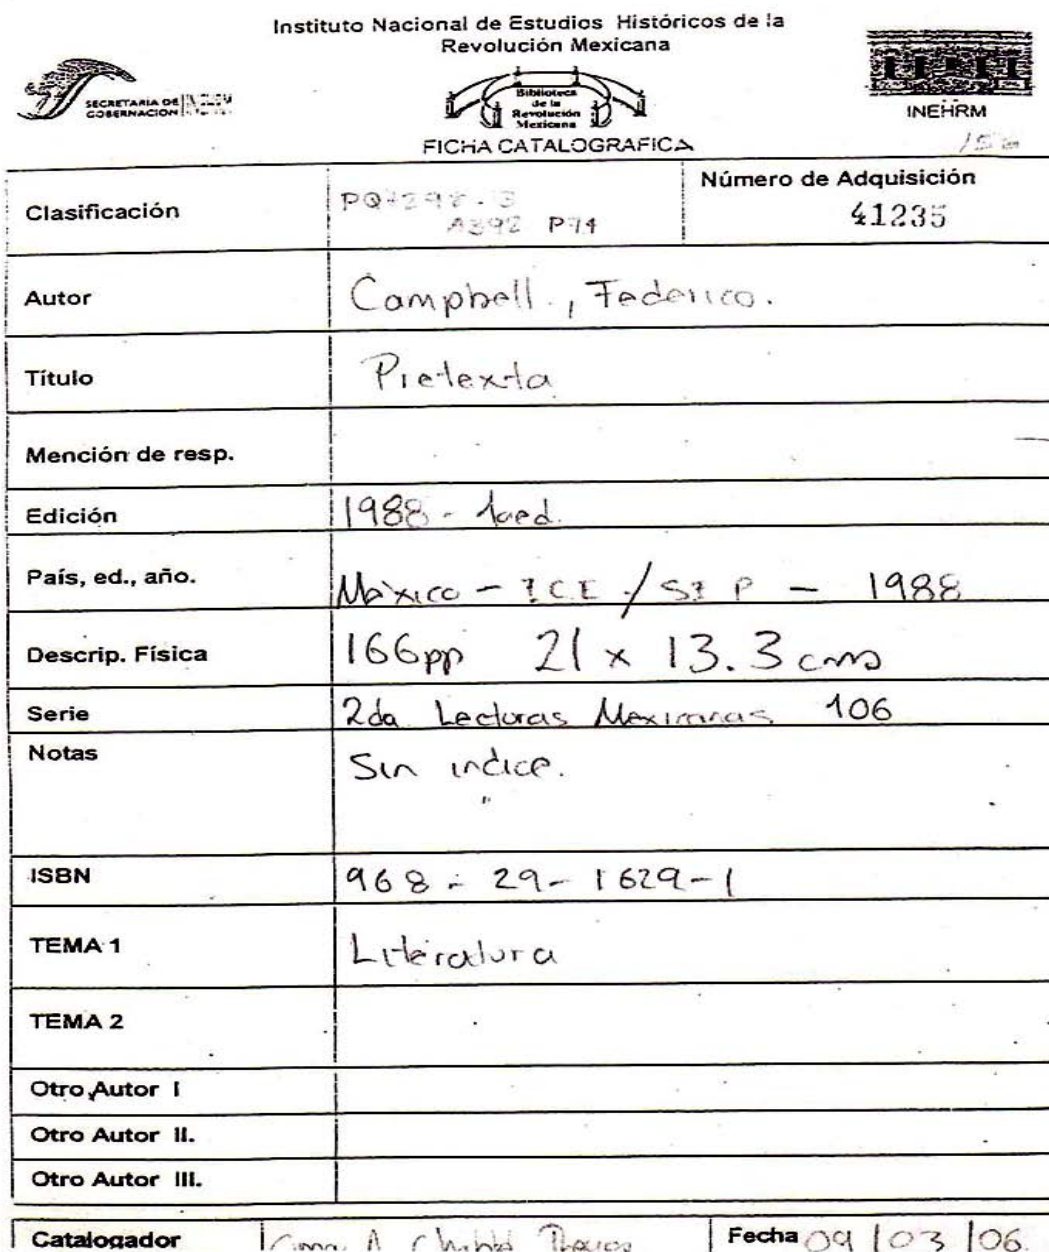 Instituto Nacional de Estudios Históricos de la
Revolución Mexicana
SECRETARIA DE
GOBERNACION
Biblioteca
de la
Revolución
Mexicana
INEHRM
FICHA CATALOGRAFICA
156
Clasificación PQ7298.3
A392 P74
Número de Adquisición
41235
Autor Campbell., Federico.
Título Pretexta
Mención de resp.
Edición 1988 - 1aed.
País, ed., año. México - / - 1988
Descrip. Física 166pp 21 x 13.3 cms
Serie 2da Lecturas Mexicanas 106
Notas Sin indice.
ISBN 968 - 29 - 1629 - 1
TEMA 1 Literatura
TEMA 2
Otro Autor I
Otro Autor II.
Otro Autor III.
Catalogador A. Fecha 09 | 03 | 06